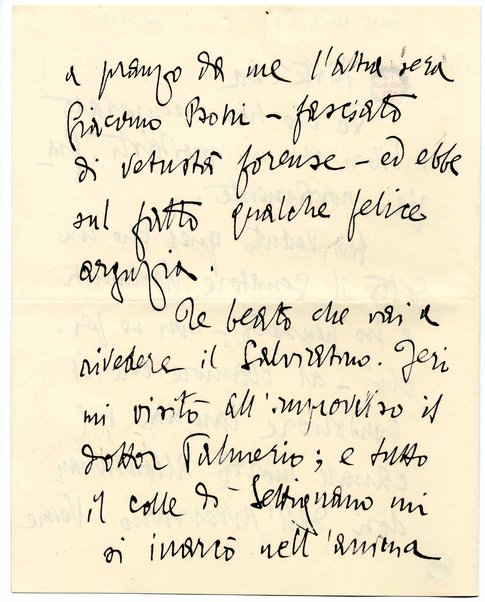 a pranzo da me l'altra sera
Giacomo Boni – fasciato
di vetustà forense – ed ebbe
sul fatto qualche felice
arguzia.
Te beato che vai a
rivedere il Salviatino. Jeri
mi visitò all'improvviso il
dottor Palmerio; e tutto
il colle di Settignano mi
si inarcò nell'anima